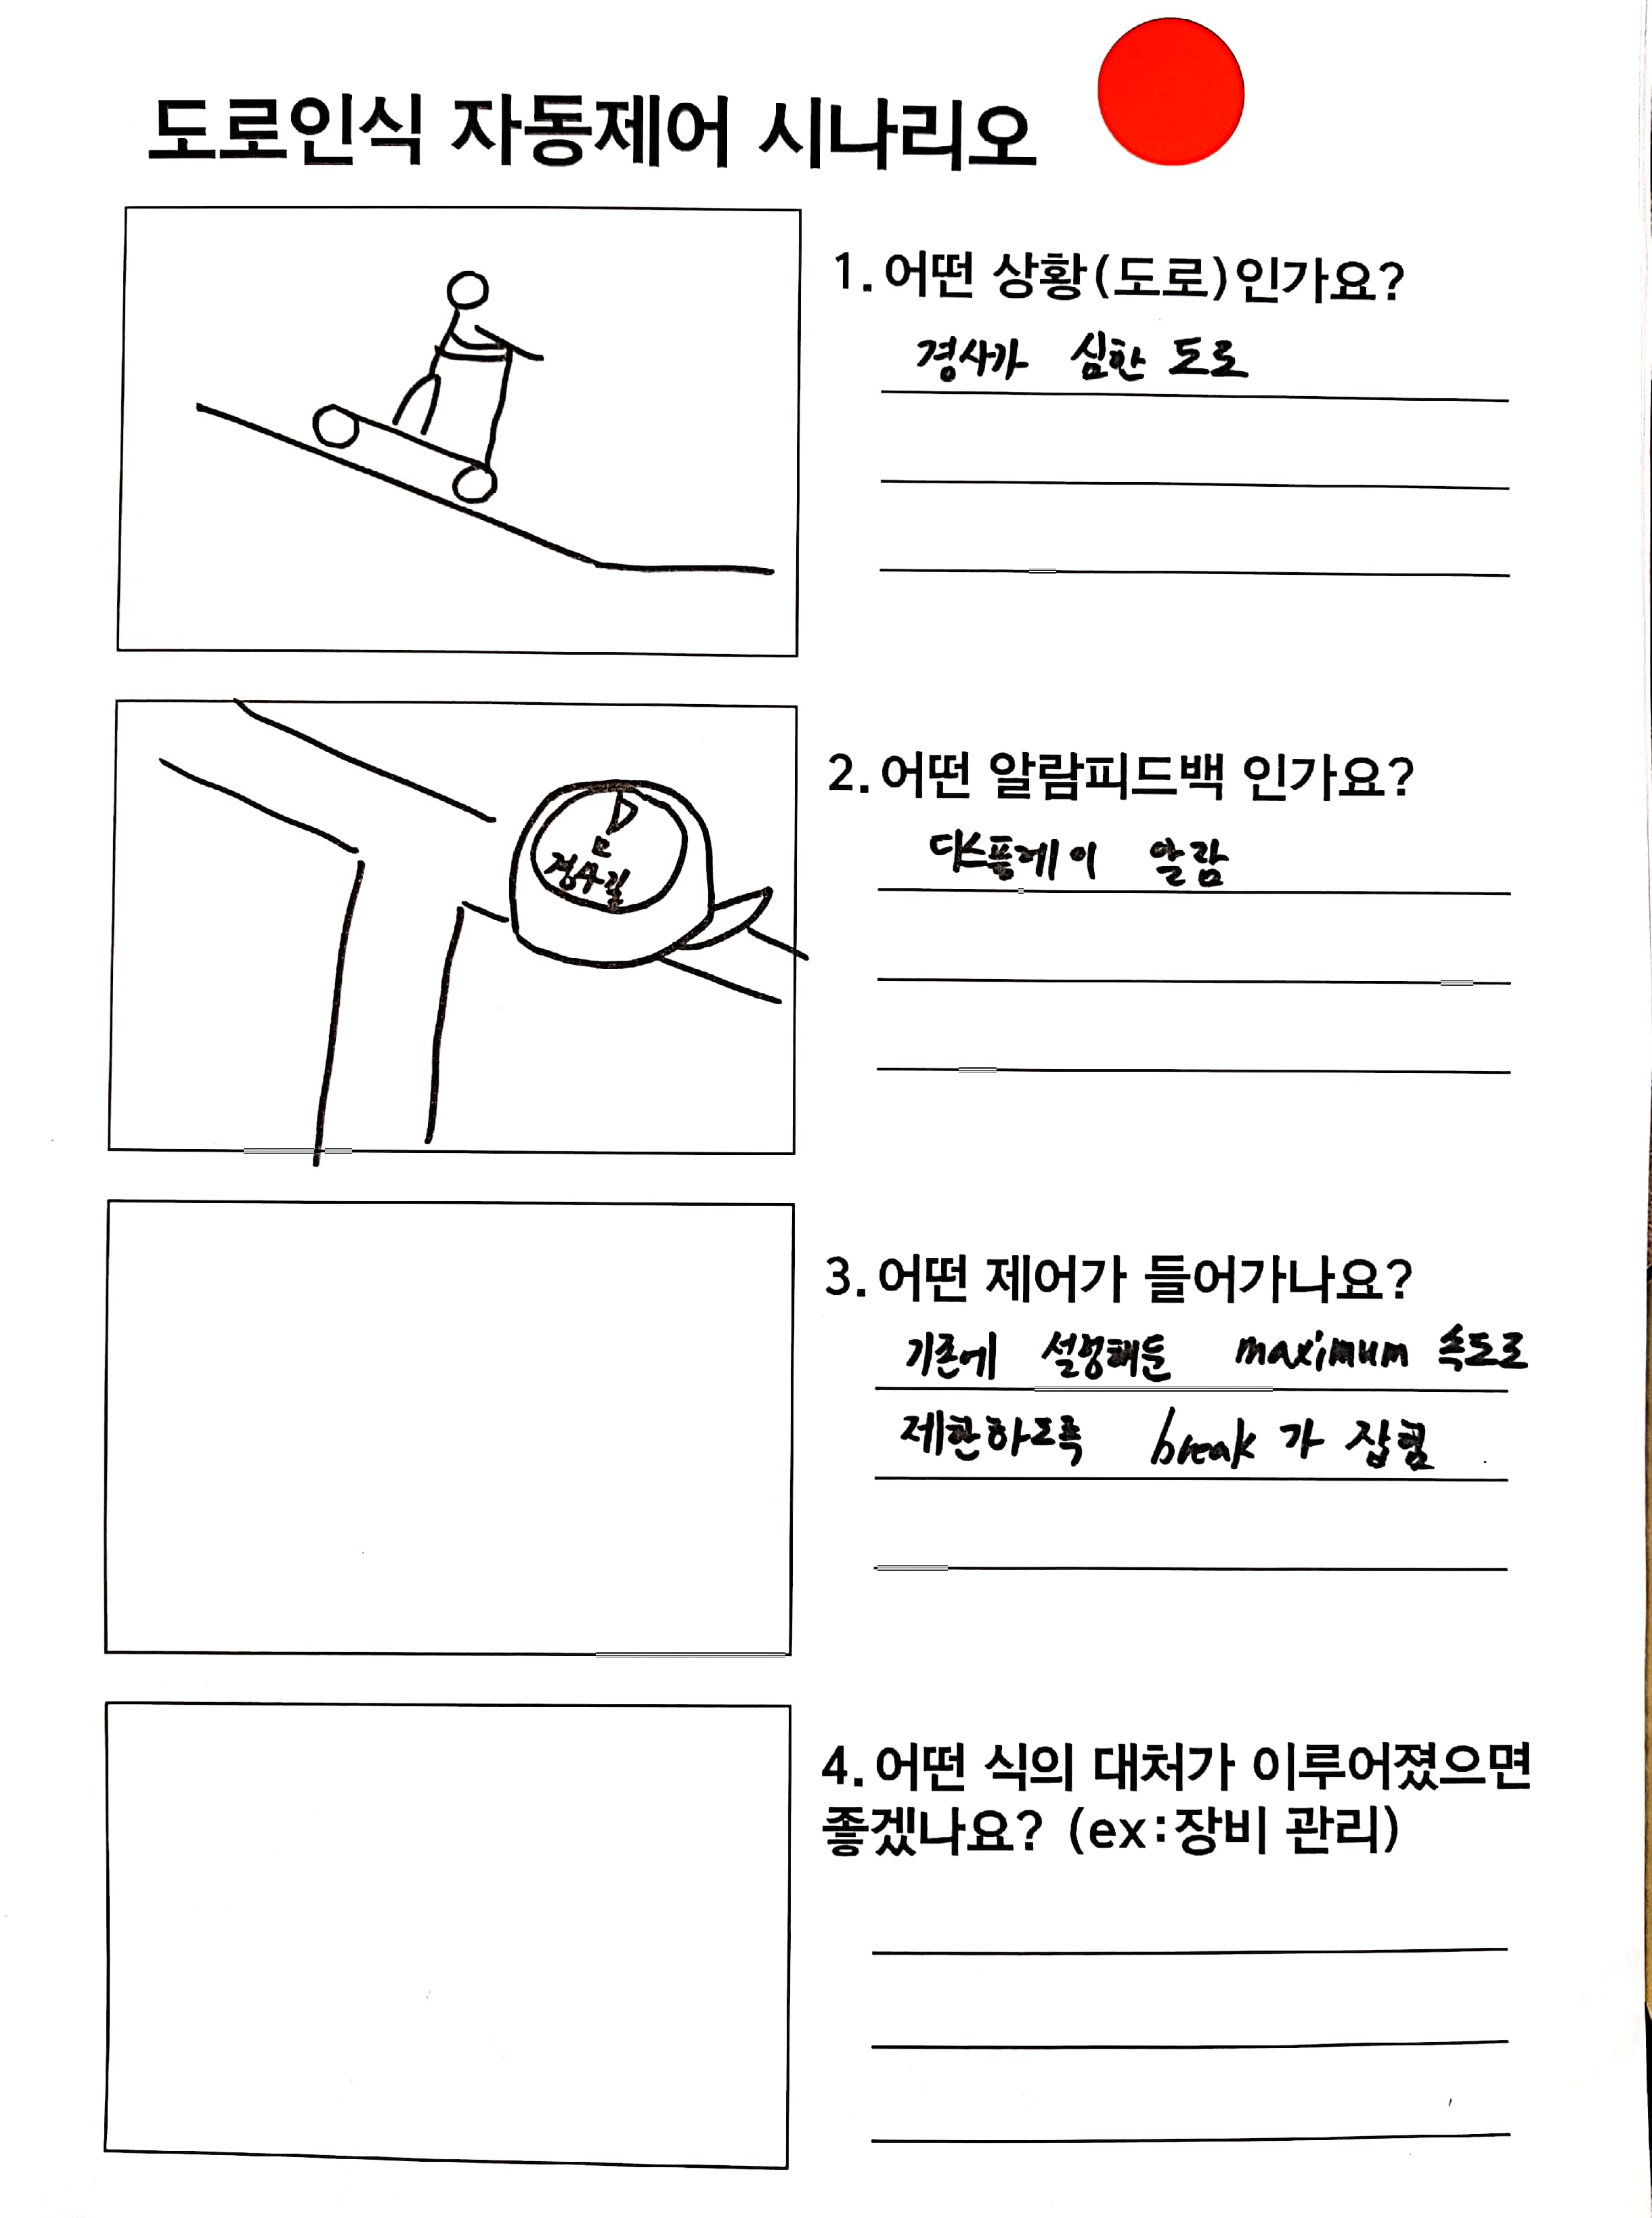 도로인식 자동제어 시나리오
1. 어떤 상황(도로)인가요?
경사가 심한 도로
경사길
2. 어떤 알람피드백 인가요?
디스플레이 알람
3. 어떤 제어가 들어가나요?
기존에 설정해둔 maximum 속도로
제한하도록 break가 잡힘
4. 어떤 식의 대처가 이루어졌으면
좋겠나요? (ex:장비 관리)